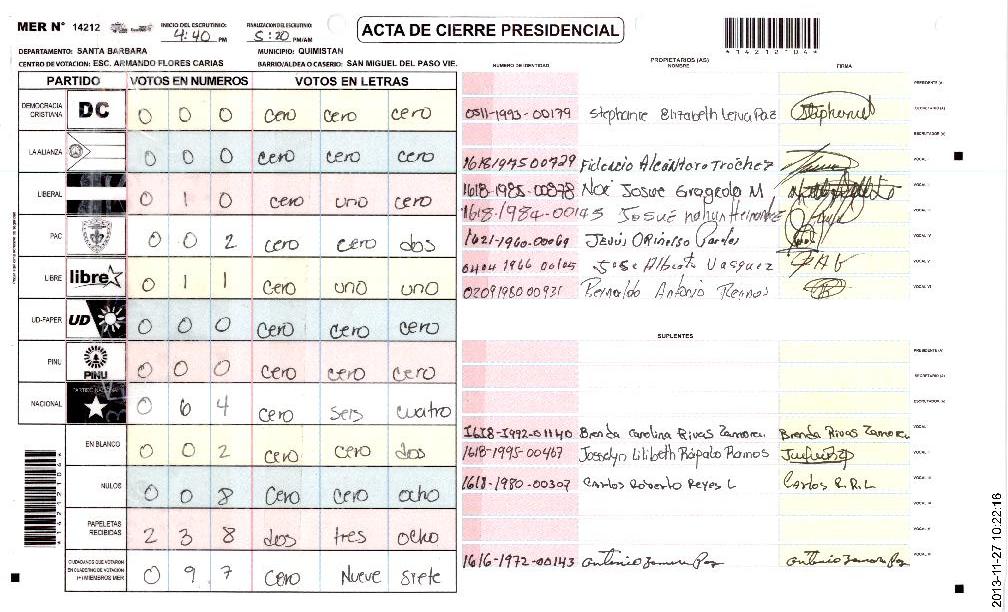 MER N° 14212
INICIO DEL ESCRUTINIO: 4:40 PM
FINALIZACION DEL ESCRUTINIO: 5:20 PM/AM
ACTA DE CIERRE PRESIDENCIAL
142121041
DEPARTAMENTO: SANTA BARBARA
MUNICIPIO: QUIMISTAN
CENTRO DE VOTACION: ESC. ARMANDO FLORES CARIAS
BARRIO/ALDEA O CASERIO: SAN MIGUEL DEL PASO VIE.
PARTIDO VOTOS EN NUMEROS VOTOS EN LETRAS
DEMOCRACIA CRISTIANA DC 0 0 0 cero cero cero
LA ALIANZA 0 0 0 cero cero cero
LIBERAL 0 1 0 cero uno cero
PAC 0 0 2 cero cero dos
LIBRE libre 0 1 1 cero uno uno
UD-FAPER UD 0 0 0 cero cero cero
PINU PINU 0 0 0 cero cero cero
NACIONAL 0 6 4 cero seis cuatro
EN BLANCO 0 0 2 cero cero dos
NULOS 0 0 8 cero cero ocho
PAPELETAS RECIBIDAS 2 3 8 dos tres ocho
CIUDADANOS QUE VOTARON EN CUADERNO DE VOTACION (+) MIEMBROS MER 0 9 7 cero Nueve siete
PROPIETARIOS (AS)
NUMERO DE IDENTIDAD NOMBRE FIRMA
PRESIDENTE (A)
0511-1993-00179 Stephanie Elizabeth Leiva Paz Stephanie SECRETARIO (A)
ESCRUTADOR (A)
1618197500729 Fidencio Alcántara Trochez VOCAL I
1618-1985-00878 Noé Josue Gragedo M VOCAL II
1618-1984-00145 Josué VOCAL III
1621-1960-00069 Jesús VOCAL IV
0404 1966 00105 Jose Alberto Vasquez VOCAL V
0209 1980 00931 Reinaldo Antonio Ramos VOCAL VI
SUPLENTES
PRESIDENTE (A)
SECRETARIO (A)
ESCRUTADOR (A)
1618-1992-01140 Brenda Carolina Rivas Zamora Brenda Rivas Zamora VOCAL I
1618-1995-00467 Josselyn Lilibeth Rápalo Ramos VOCAL II
1618-1980-00307 Carlos Roberto Reyes L Carlos R.R.L VOCAL III
1616-1972-00143 Antonio Zamora Paz Antonio Zamora Paz VOCAL VI
2013-11-27 10:22:16